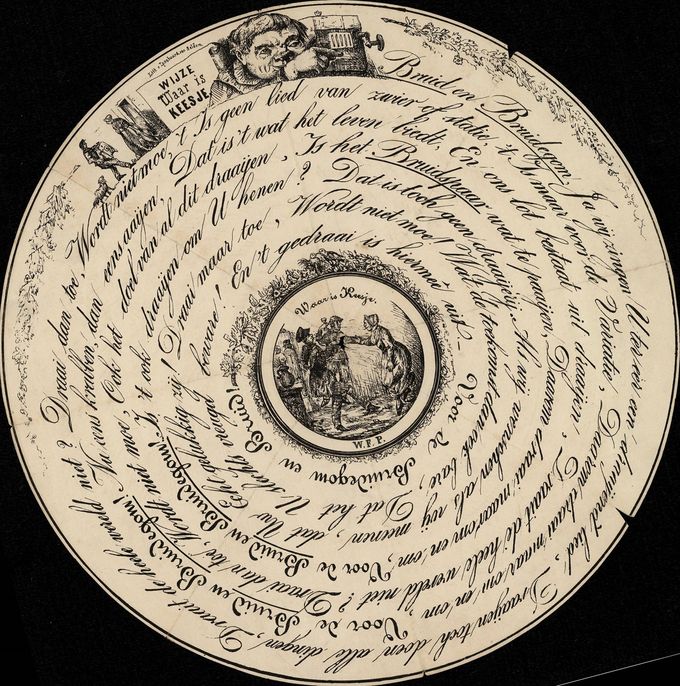 Lith. v.
WIJZE
Waar is
KEESJE
Bruid en Bruidegom! Ja wij zingen U eer een' draaijend lied,
Draaijen toch doen alle dingen, Draait de heele wereld niet?
Draai dan toe, Wordt niet moe, 't Is geen lied van zwier of statie,
't Is maar voor de Variatie, Daarom draai maar om en om,
Voor de Bruid en Bruidegom!
Nu eens krabben, dan eens aaijen, Dat is't wat het leven biedt,
En ons lot bestaat uit draaijen, Draait de hele wereld niet?
Draai dan toe, Wordt niet moe, Ook het doel van al dit draaijen,
Is het Bruidspaar wat te paaijen, Daarom draai maar om en om,
Voor de Bruid en Bruidegom!
Is 't ook draaijen om U henen? Dat is toch geen draaijerij,
Als wij wenschen als wij meenen, dat Uw Echt gelukkig zij!
Draai maar toe, Wordt niet moe! Wat de toekomst dan ook bare,
Dat het U slechts vreugd beware!
En 't gedraai is hiermeê uit –
Voor de Bruidegom en Bruid!
Waar is Keesje.
W.F.P.